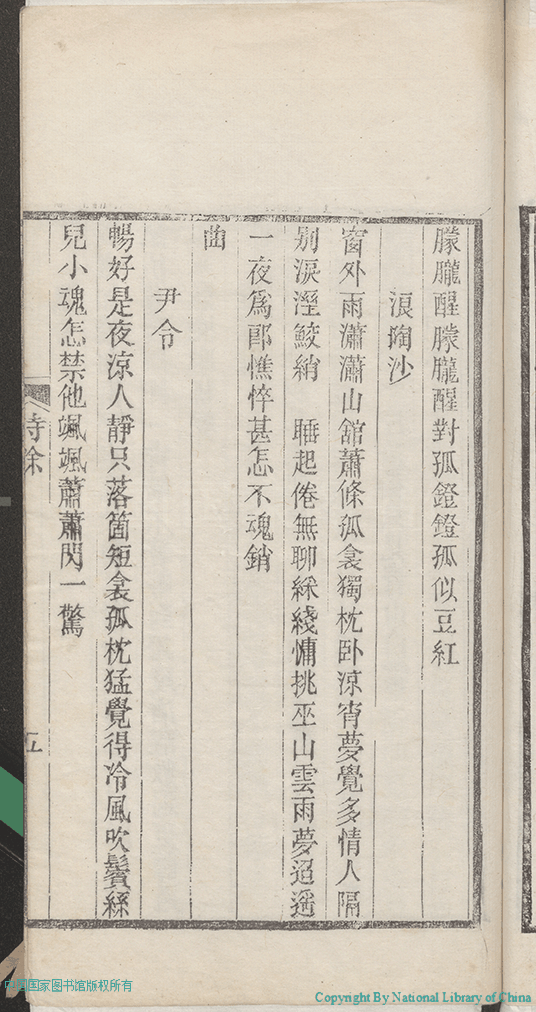 朦朧醒朦朧醒對孤鐙鐙孤似豆紅
浪掏沙
窗外雨瀟瀟山舘蕭條孤衾獨枕卧涼宵夢覺多情人隔
別淚溼鮫綃　睡起倦無聊綵綫慵挑巫山雲雨夢迢遥
一夜爲郎憔悴甚怎不魂銷
曲
尹令
暢好是夜涼人靜只落箇短衾孤枕猛覺得冷風吹鬢絲
兒小魂怎禁他颯颯蕭蕭閃一驚
詩餘
五
中国国家图书馆版权所有
Copyright By National Library of China